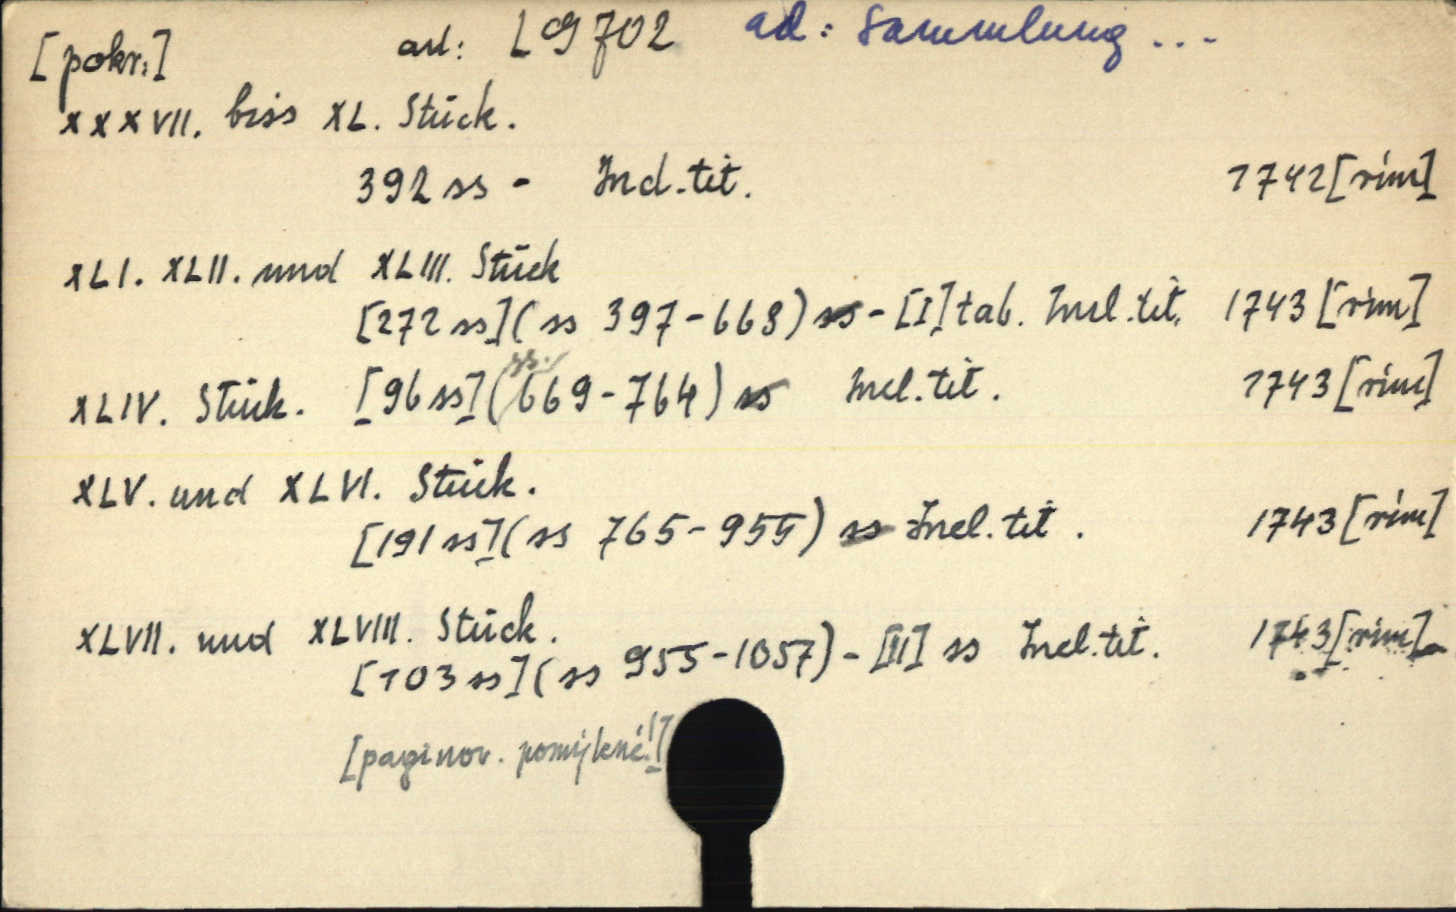 [pokr.] ad: LG 702 ad: Sammlung ...
XXXVII. biss XL. Stück.
392 ss - Incl. tit. 1742 [rím]
XLI. XLII. und XLIII. Stück
[272 ss] (ss 397-668) ss - [I] tab. Incl. tit. 1743 [rím]
ss.
XLIV. Stück. [96 ss] (669-764) ss Incl. tit. 1743 [rím]
XLV. und XLVI. Stück.
[191 ss] (ss 765-955) ss Incl. tit. 1743 [rím]
XLVII. und XLVIII. Stück.
[103 ss] (ss 955-1057) - [II] ss Incl. tit. 1743 [rím]
[paginov. pomýlené!]